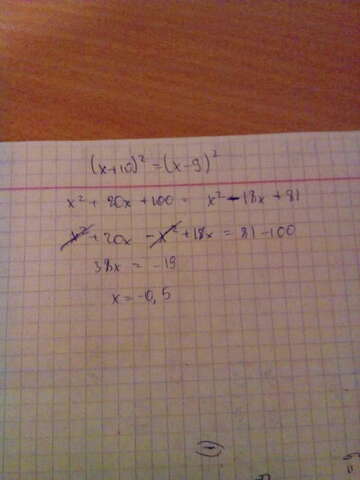 (x+10)² = (x-9)²
x² + 20x + 100 = x² - 18x + 81
x² + 20x - x² + 18x = 81 - 100
38x = -19
x = -0,5